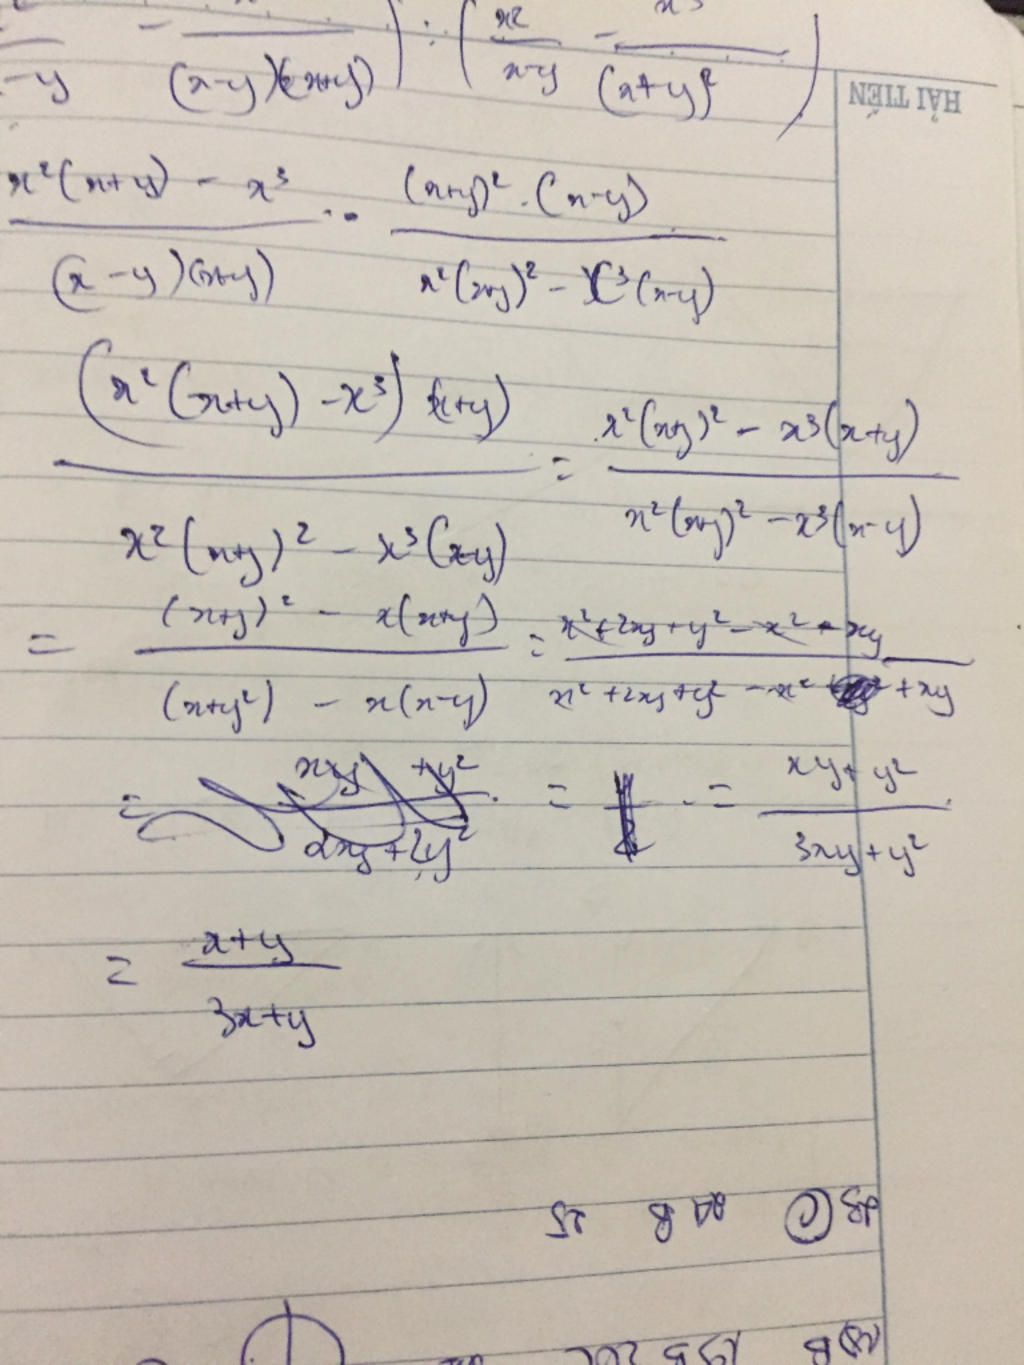 x²/(x-y) - x³
-y (x-y)(x+y) ) : ( x-y (x+y)²
HẢI TIẾN
x²(x+y) - x³ / (x-y)(x+y) · (x+y)² . (x-y) / x²(x+y)² - x³(x-y)
(x²(x+y) - x³)(x+y) / x²(x+y)² - x³(x-y) = x²(x+y)² - x³(x+y) / x²(x+y)² - x³(x-y)
= (x+y)² - x(x+y) / (x+y²) - x(x-y) = x²+2xy+y² - x² - xy / x²+2xy+y² - x² + xy
= xy + y² / 2xy + 2y² = = xy + y² / 3xy + y²
= x+y / 3x+y